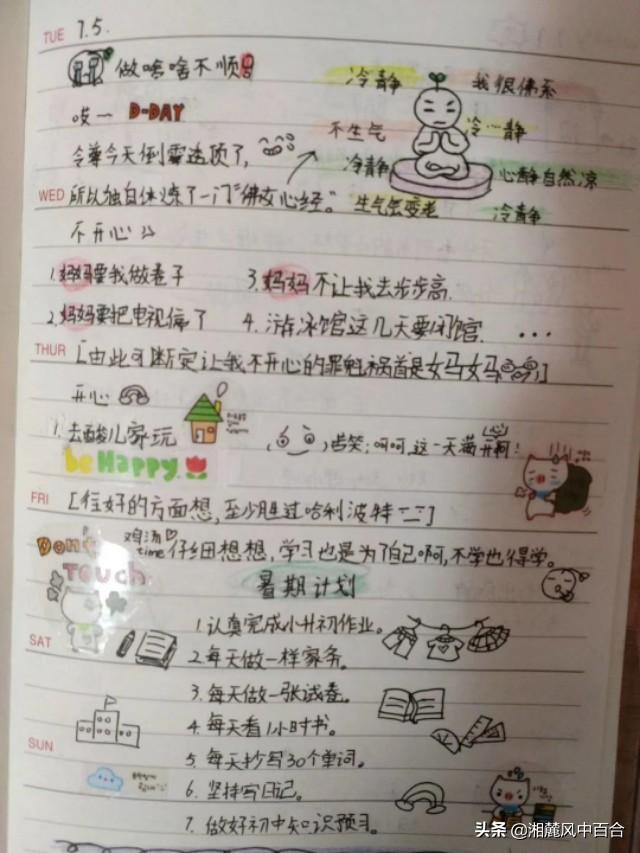 TUE 7.5.
做啥啥不顺
冷静 我很佛系
哎一 D-DAY
不生气 冷静
令尊今天倒霉透顶了,
冷静 心静自然凉
WED 所以独自体炼了一门"佛友心经。" 生气会变老 冷静
不开心
1.妈妈要我做卷子 3.妈妈不让我去步步高.
2.妈妈要把电视偏了 4.游泳馆这几天要闭馆. ...
THUR [由此可断定让我不开心的罪魁祸首是女马女马]
开心
1.去酸儿家玩 苦笑:呵呵,这一天满开啊!
be Happy
FRI [往好的方面想,至少胜过哈利波特]
Dont Touch
鸡汤time 仔细想想,学习也是为了自己啊,不学也得学。
暑期计划
1.认真完成小升初作业。
SAT
2.每天做一样家务。
3.每天做一张试卷。
4.每天看1小时书。
SUN
5.每天抄写30个单词。
6.坚持写日记。
7.做好初中知识预习。
头条 @湘麓风中百合